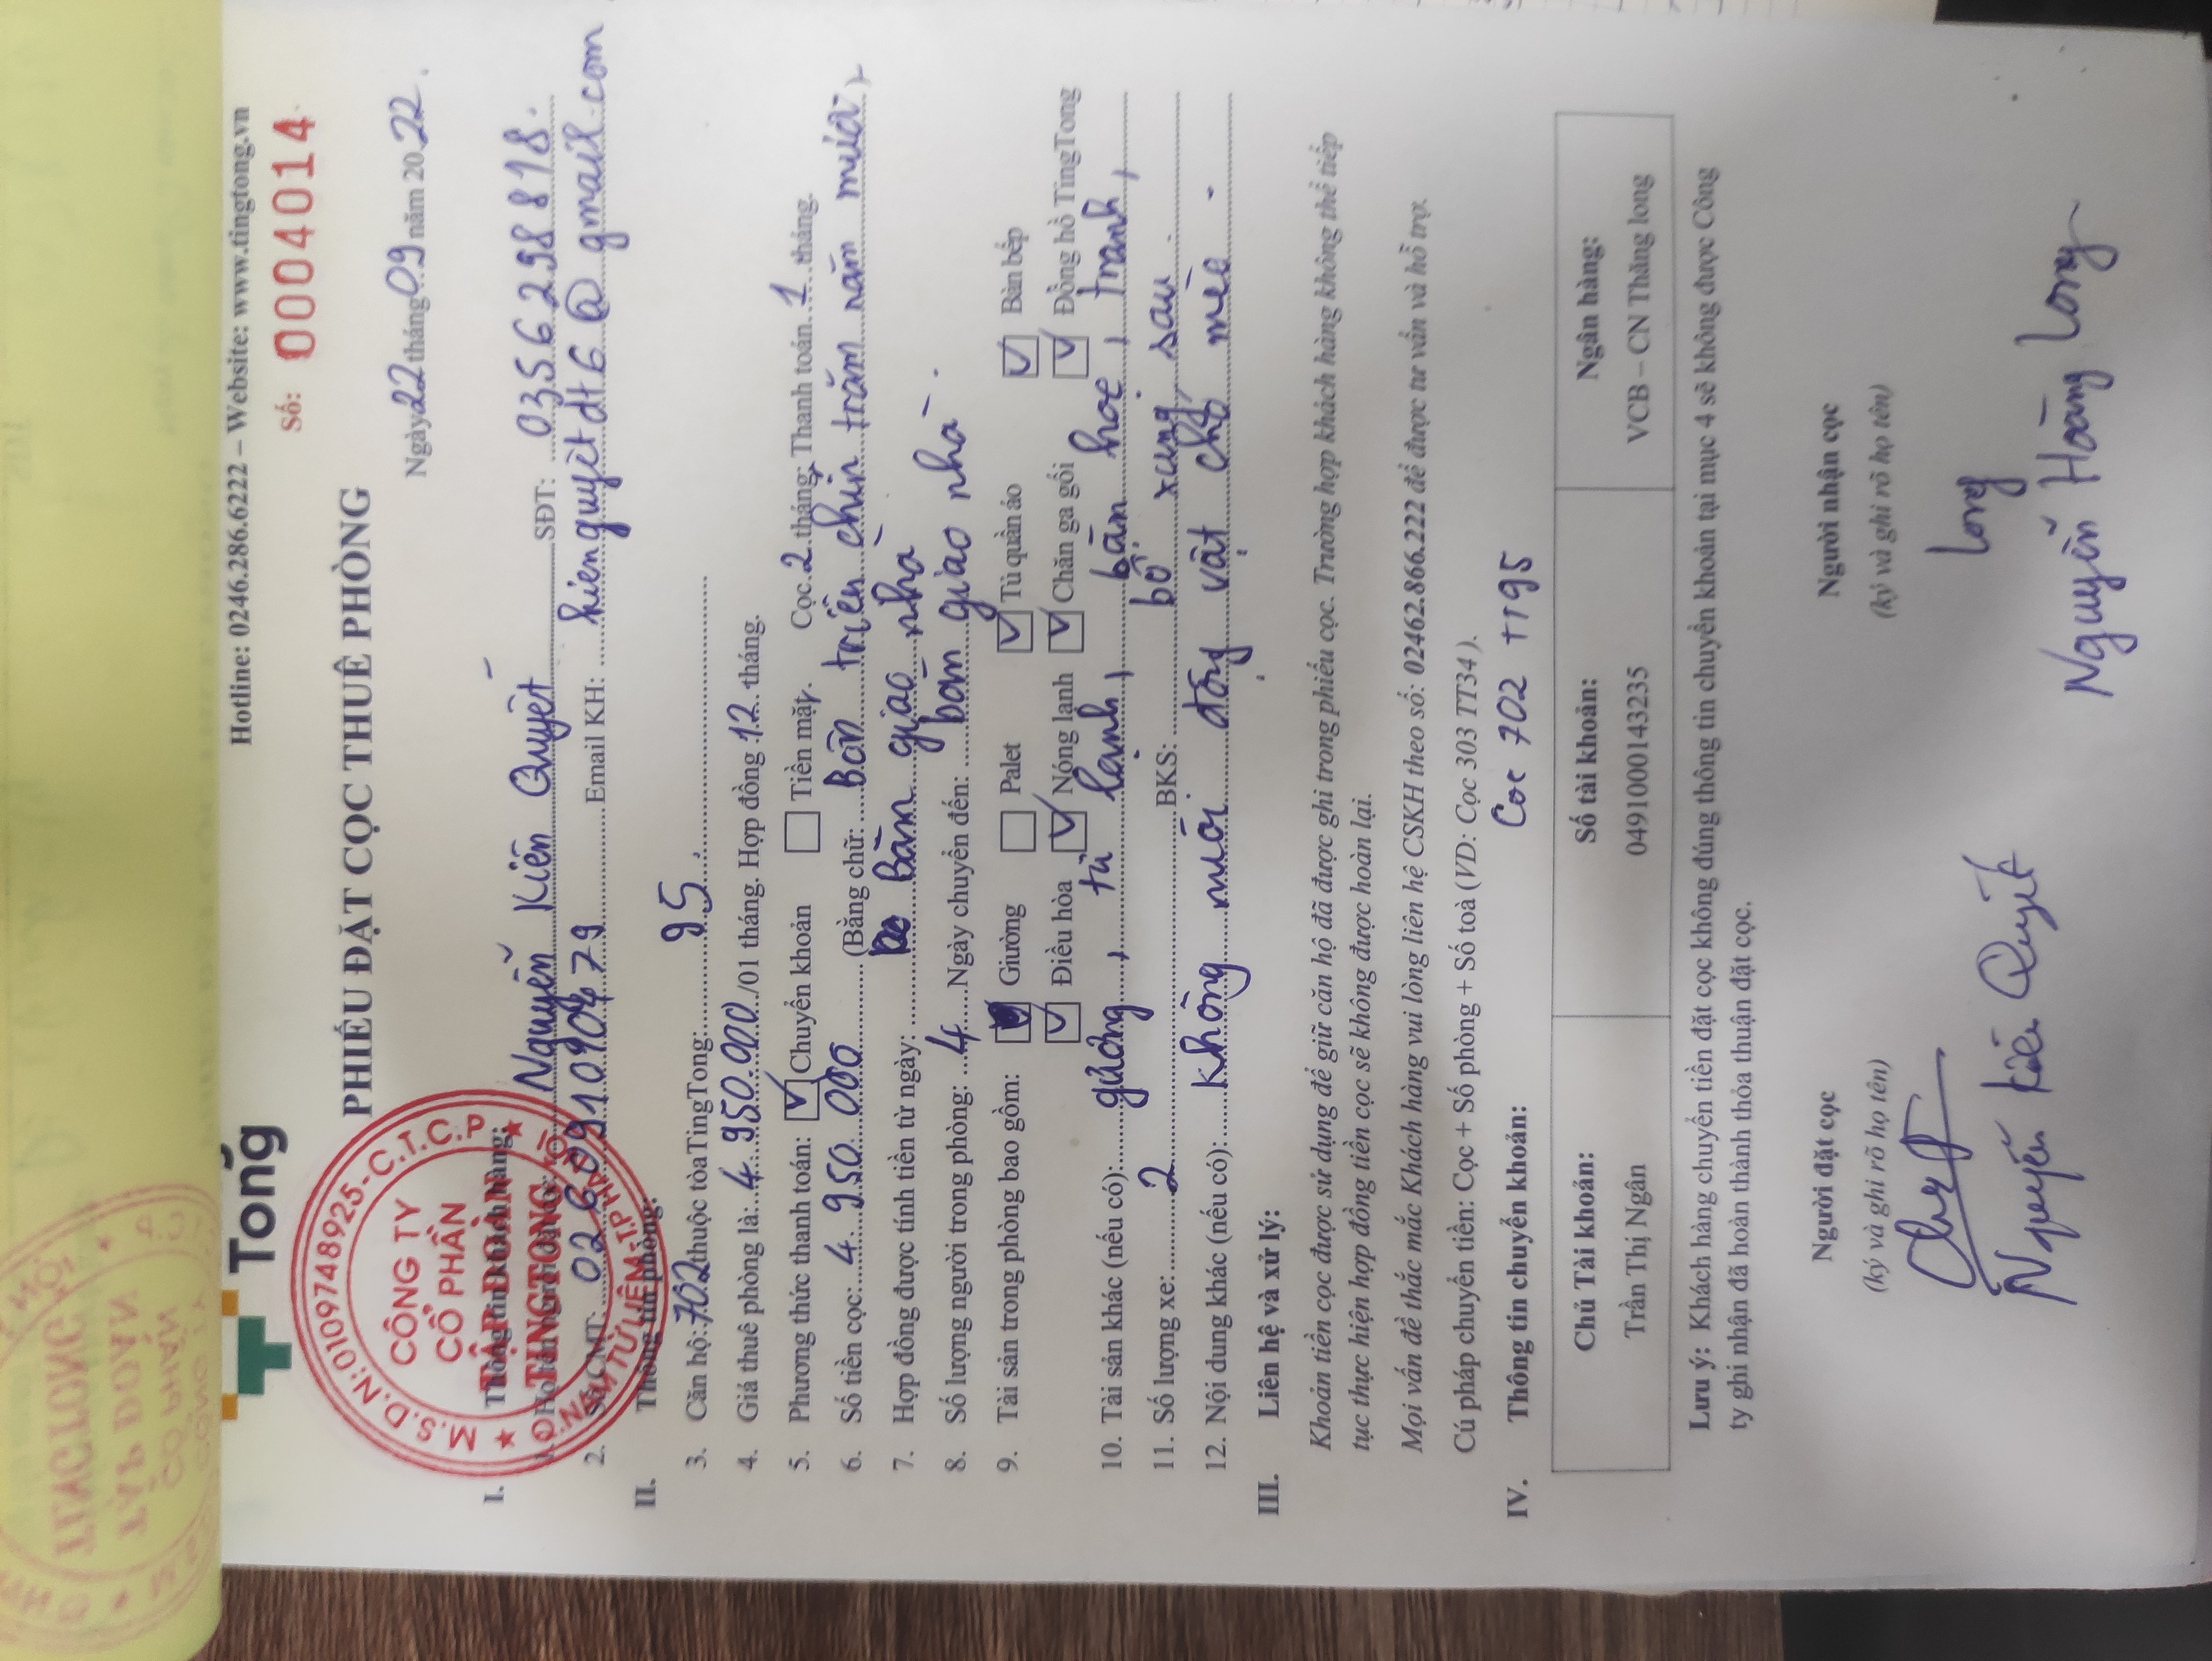 Tong
Hotline: 0246.286.6222 – Website: www.tingtong.vn
Số: 0004014
PHIẾU ĐẶT CỌC THUÊ PHÒNG
Ngày 22 tháng 09 năm 20 22.
M.S.D.N:0109748925-C.T.C.P
CÔNG TY
CỔ PHẦN
TẬP ĐOÀN
TINGTONG
Q. NAM TỪ LIÊM-T.P HÀ NỘI
I. Thông tin khách hàng:
1. Nguyễn Kiên Quyết SĐT: 0356298818.
2. Số CMT: Email KH: kienquyetdt6@gmail.com
II. Thông tin phòng:
3. Căn hộ: 702 thuộc tòa TingTong: 95.
4. Giá thuê phòng là: 4.950.000/01 tháng. Hợp đồng 12 tháng.
5. Phương thức thanh toán: Chuyển khoản Tiền mặt. Cọc 2 tháng; Thanh toán 1 tháng.
6. Số tiền cọc: 4.950 000 (Bằng chữ: Bốn triệu chín trăm năm mươi)
7. Hợp đồng được tính tiền từ ngày: Bàn giao nhà
8. Số lượng người trong phòng: 4 Ngày chuyển đến: bàn giao nhà.
9. Tài sản trong phòng bao gồm: Giường Palet Tủ quần áo Bàn bếp
Điều hòa Nóng lạnh Chăn ga gối Đồng hồ TingTong
10. Tài sản khác (nếu có): gương, tủ lạnh, bàn học, tranh,
11. Số lượng xe: 2 BKS: bổ xung sau.
12. Nội dung khác (nếu có): không nuôi động vật chó mèo.
III. Liên hệ và xử lý:
Khoản tiền cọc được sử dụng để giữ căn hộ đã được ghi trong phiếu cọc. Trường hợp khách hàng không thể tiếp
tục thực hiện hợp đồng tiền cọc sẽ không được hoàn lại.
Mọi vấn đề thắc mắc Khách hàng vui lòng liên hệ CSKH theo số: 02462.866.222 để được tư vấn và hỗ trợ.
Cú pháp chuyển tiền: Cọc + Số phòng + Số toà (VD: Cọc 303 TT34).
IV. Thông tin chuyển khoản: Coc 702 TT95
Chủ Tài khoản: Số tài khoản: Ngân hàng:
Trần Thị Ngân 0491000143235 VCB – CN Thăng long
Lưu ý: Khách hàng chuyển tiền đặt cọc không đúng thông tin chuyển khoản tại mục 4 sẽ không được Công
ty ghi nhận đã hoàn thành thỏa thuận đặt cọc.
Người đặt cọc Người nhận cọc
(ký và ghi rõ họ tên) (ký và ghi rõ họ tên)
Long
Nguyễn Kiên Quyết Nguyễn Hoàng Long